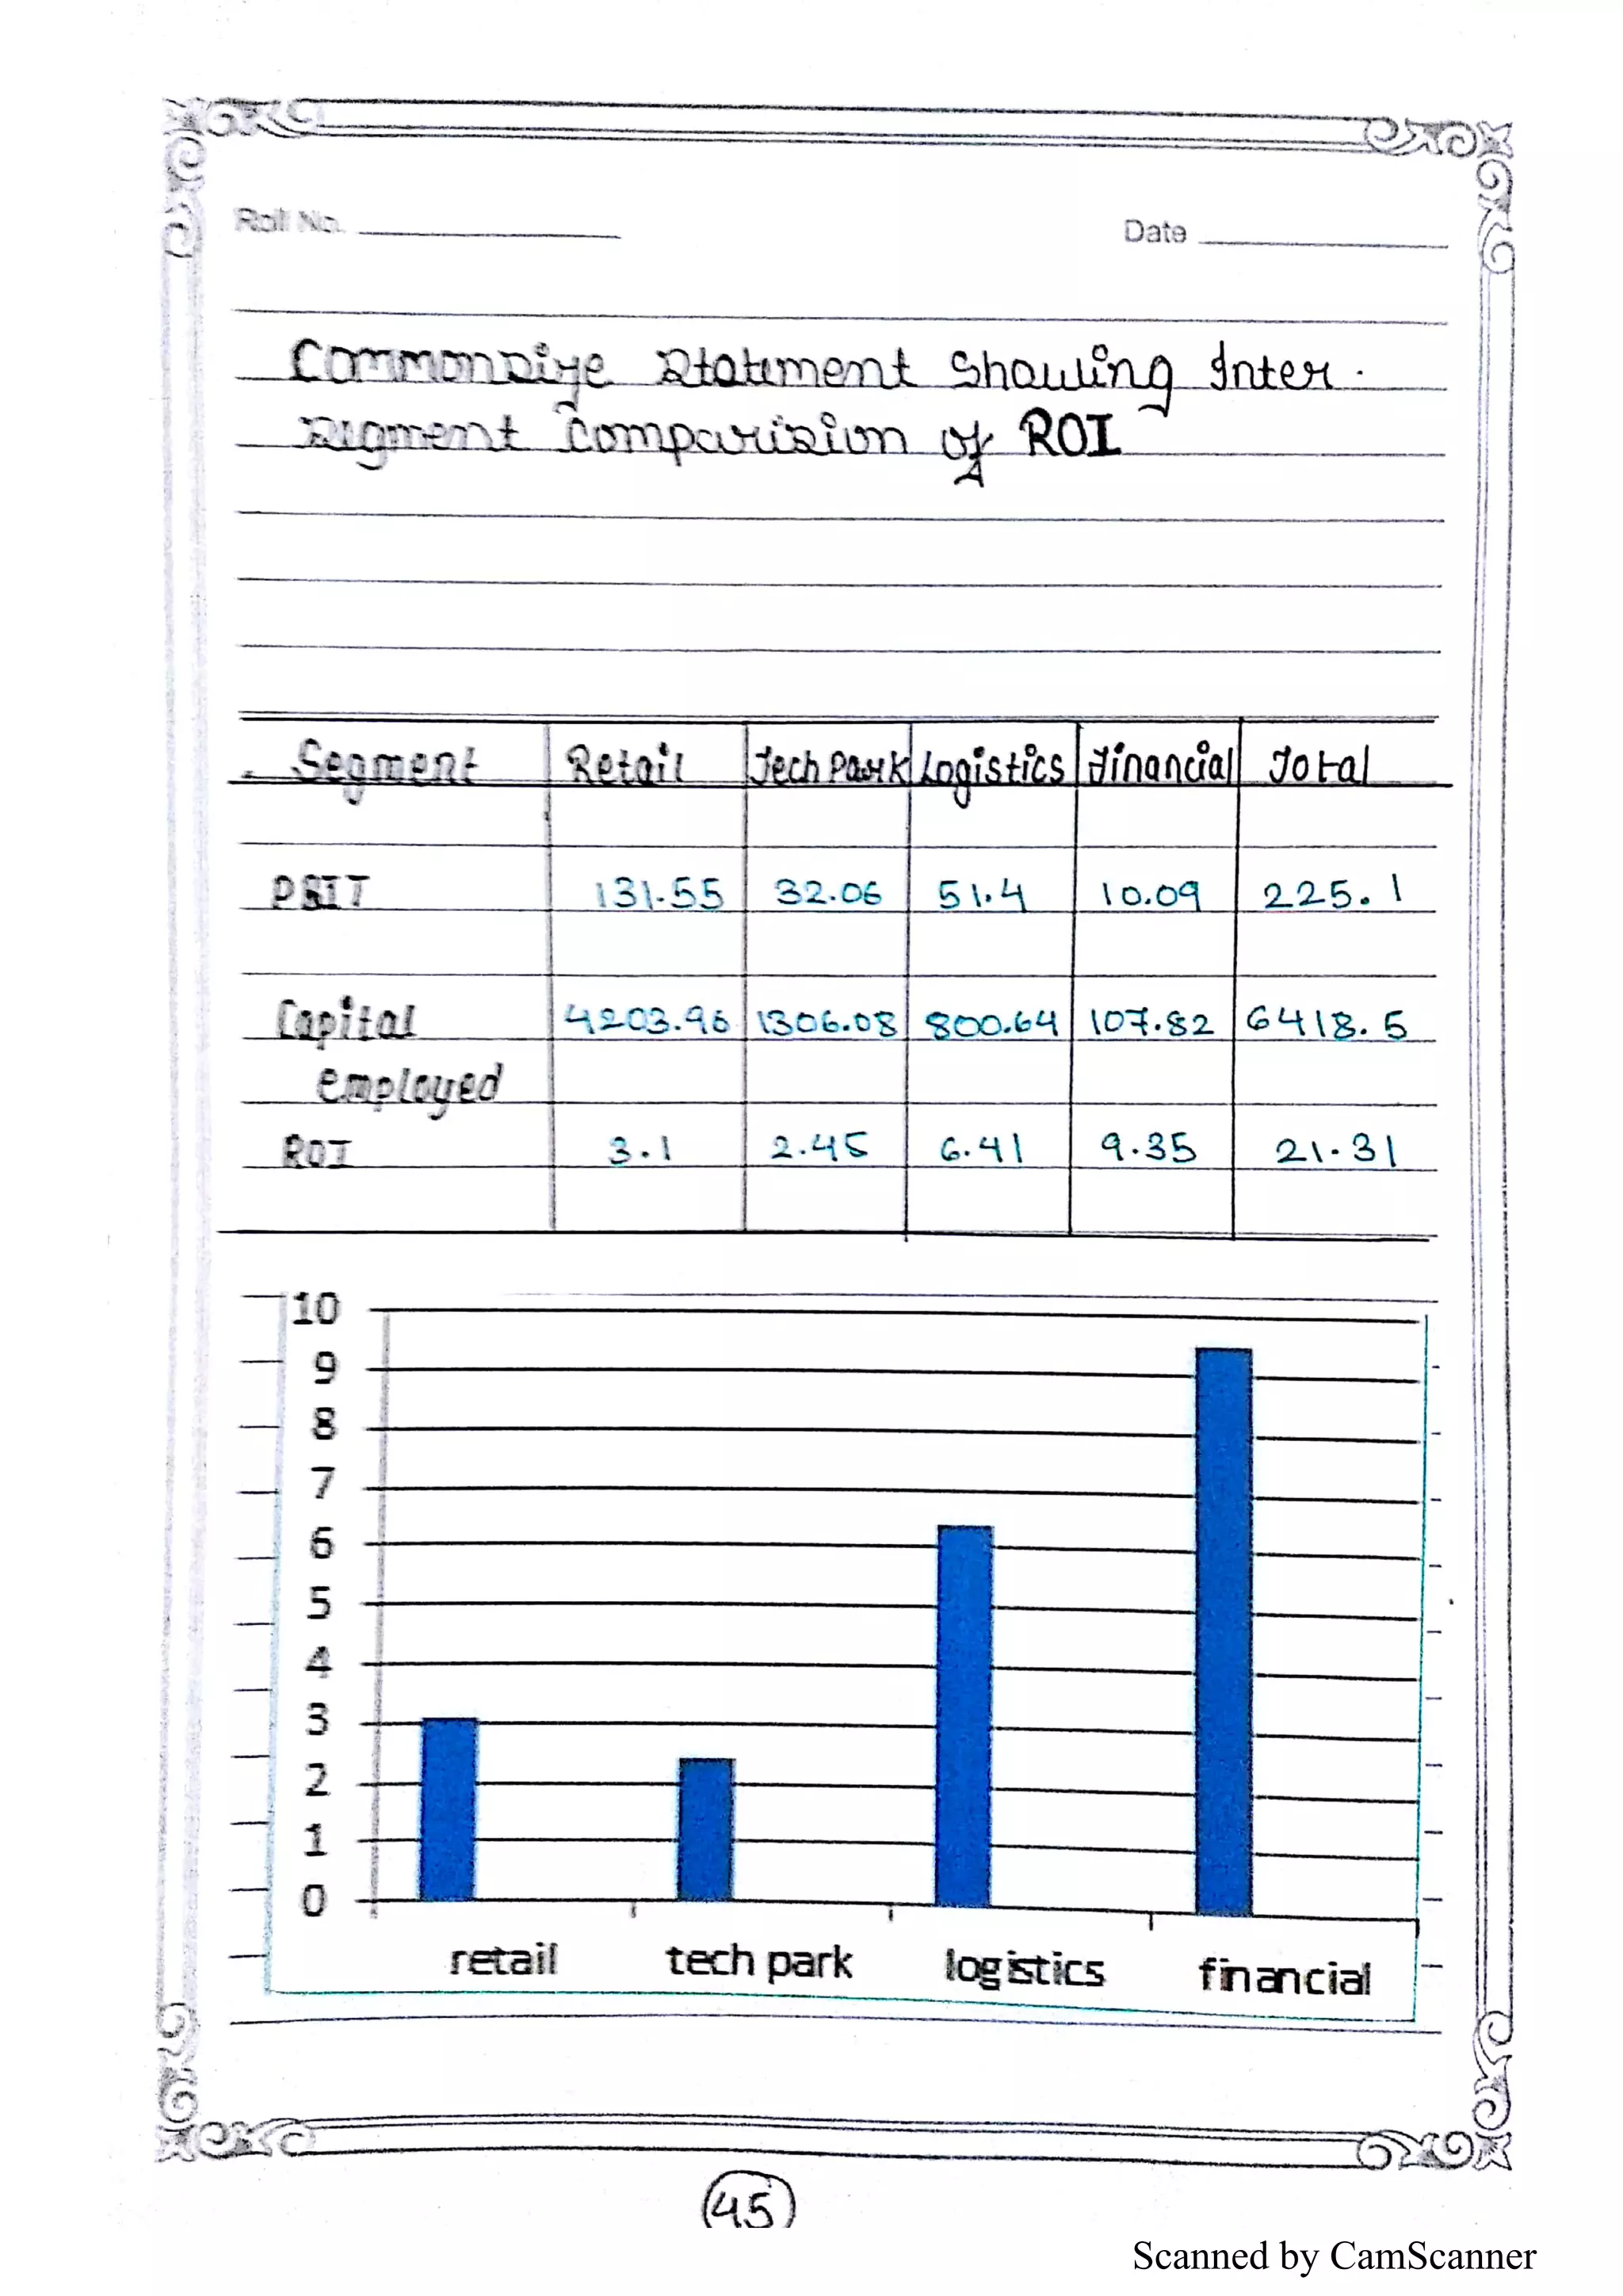 Roll No.
Date
Commonsize Statement Showing Inter.
Segment Comparision of ROI
Segment Retail Tech Park Logistics Financial Total
PBIT 131.55 32.06 51.4 10.09 225.1
Capital 4203.96 1306.08 800.64 107.82 6418.5
employed
ROI 3.1 2.45 6.41 9.35 21.31
10
9
8
7
6
5
4
3
2
1
0
retail tech park logistics financial
45
Scanned by CamScanner